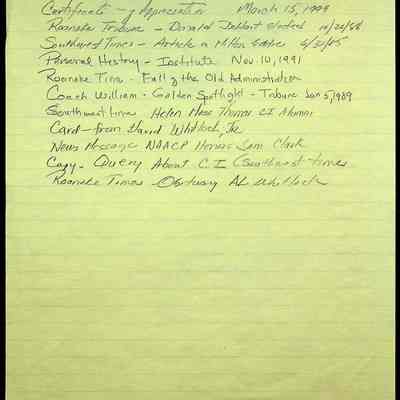 Certificate of Appreciation March 15, 1999
Roanoke Tribune - Donald elected
Southwest Times - Article on
Personal History - Institute Nov 10, 1991
Roanoke Time - Fall of the Old Administration
Coach William - Golden Spotlight - Tribune Jan 5, 1989
Southwest times Helen Thomas CI Alumni
Card - from David Whitlock, Jr
News Message NAACP Honors Sam Clark
Copy - Query About C I (Southwest times
Roanoke Times - Obituary AL Whitlock